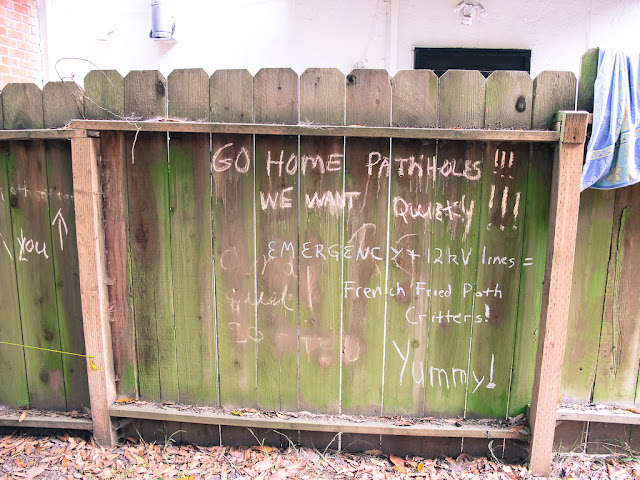 GO HOME PATHHOLES !!!
WE WANT QUIETY !!!
YOU ↑
EMERGENCY + 12kV lines =
French Fried Path
Critters!
Yummy!